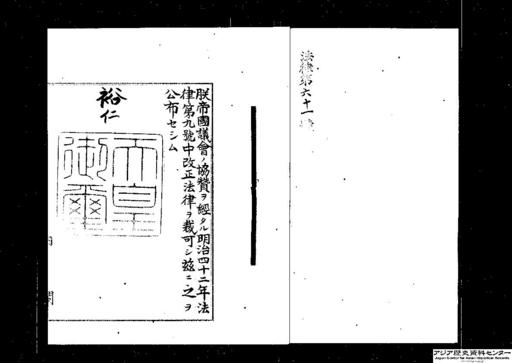 法律第六十一號
朕帝國議會ノ協贊ヲ經タル明治四十二年法
律第九號中改正法律ヲ裁可シ茲ニ之ヲ
公布セシム
裕仁
天皇御璽
内 閣
アジア歴史資料センター
Japan Center for Asian Historical Records